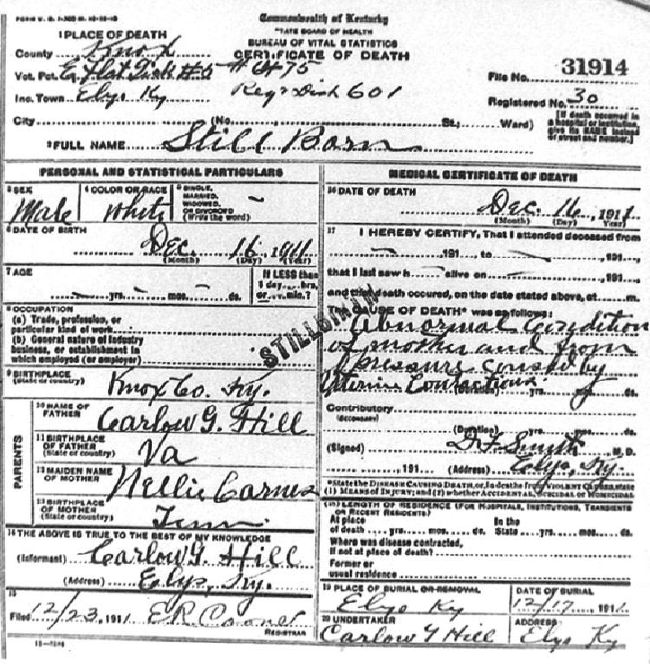 Commonwealth of Kentucky
STATE BOARD OF HEALTH
BUREAU OF VITAL STATISTICS
CERTIFICATE OF DEATH
1 PLACE OF DEATH
County Knox
Vot. Pct. E. Flat Lick #5 # 6475
File No. 31914
Inc. Town Elys Ky Reg. Dist 601
Registered No. 30
City (No. St.; Ward)
[If death occurred in a hospital or institution, give its NAME instead of street and number.]
2 FULL NAME Still Born
PERSONAL AND STATISTICAL PARTICULARS
3 SEX Male
4 COLOR OR RACE White
5 SINGLE, MARRIED, WIDOWED, OR DIVORCED (Write the word) –
6 DATE OF BIRTH
Dec. 16 1911
(Month) (Day) (Year)
7 AGE
yrs. mos. ds.
If LESS than 1 day, hrs. or min.?
STILLBIRTH
8 OCCUPATION
(a) Trade, profession, or particular kind of work
(b) General nature of industry business, or establishment in which employed (or employer)
9 BIRTHPLACE (State or country) Knox Co. Ky.
PARENTS
10 NAME OF FATHER Carlow G. Hill
11 BIRTHPLACE OF FATHER (State or country) Va
12 MAIDEN NAME OF MOTHER Nellie Carnes
13 BIRTHPLACE OF MOTHER (State or country) Tenn
14 THE ABOVE IS TRUE TO THE BEST OF MY KNOWLEDGE
(Informant) Carlow G. Hill
(Address) Elys, Ky.
15
Filed 12/23, 1911 E.R.
REGISTRAR
MEDICAL CERTIFICATE OF DEATH
16 DATE OF DEATH
Dec. 16, 1911
(Month) (Day) (Year)
17 I HEREBY CERTIFY, That I attended deceased from
191 , to 191 ,
that I last saw h alive on 191 ,
and that death occured, on the date stated above, at m.
The CAUSE OF DEATH* was as follows:
Abnormal Condition
of mother and from
pressure caused by
Uterine Contractions
(Duration) yrs. mos. ds.
Contributory
(SECONDARY)
(Duration) yrs. mos. ds.
(Signed) D.F. Smith M.D.
191 (Address) Elys, Ky.
*State the DISEASE CAUSING DEATH, or, in deaths from VIOLENT CAUSES, state (1) MEANS OF INJURY; and (2) whether ACCIDENTAL, SUICIDAL OR HOMICIDAL
18 LENGTH OF RESIDENCE (FOR HOSPITALS, INSTITUTIONS, TRANSIENTS OR RECENT RESIDENTS)
At place of death yrs. mos. ds. In the State yrs. mos. ds.
Where was disease contracted, if not at place of death?
Former or usual residence
19 PLACE OF BURIAL OR REMOVAL Elys Ky
DATE OF BURIAL 12/17, 1911
20 UNDERTAKER Carlow G Hill
ADDRESS Elys Ky